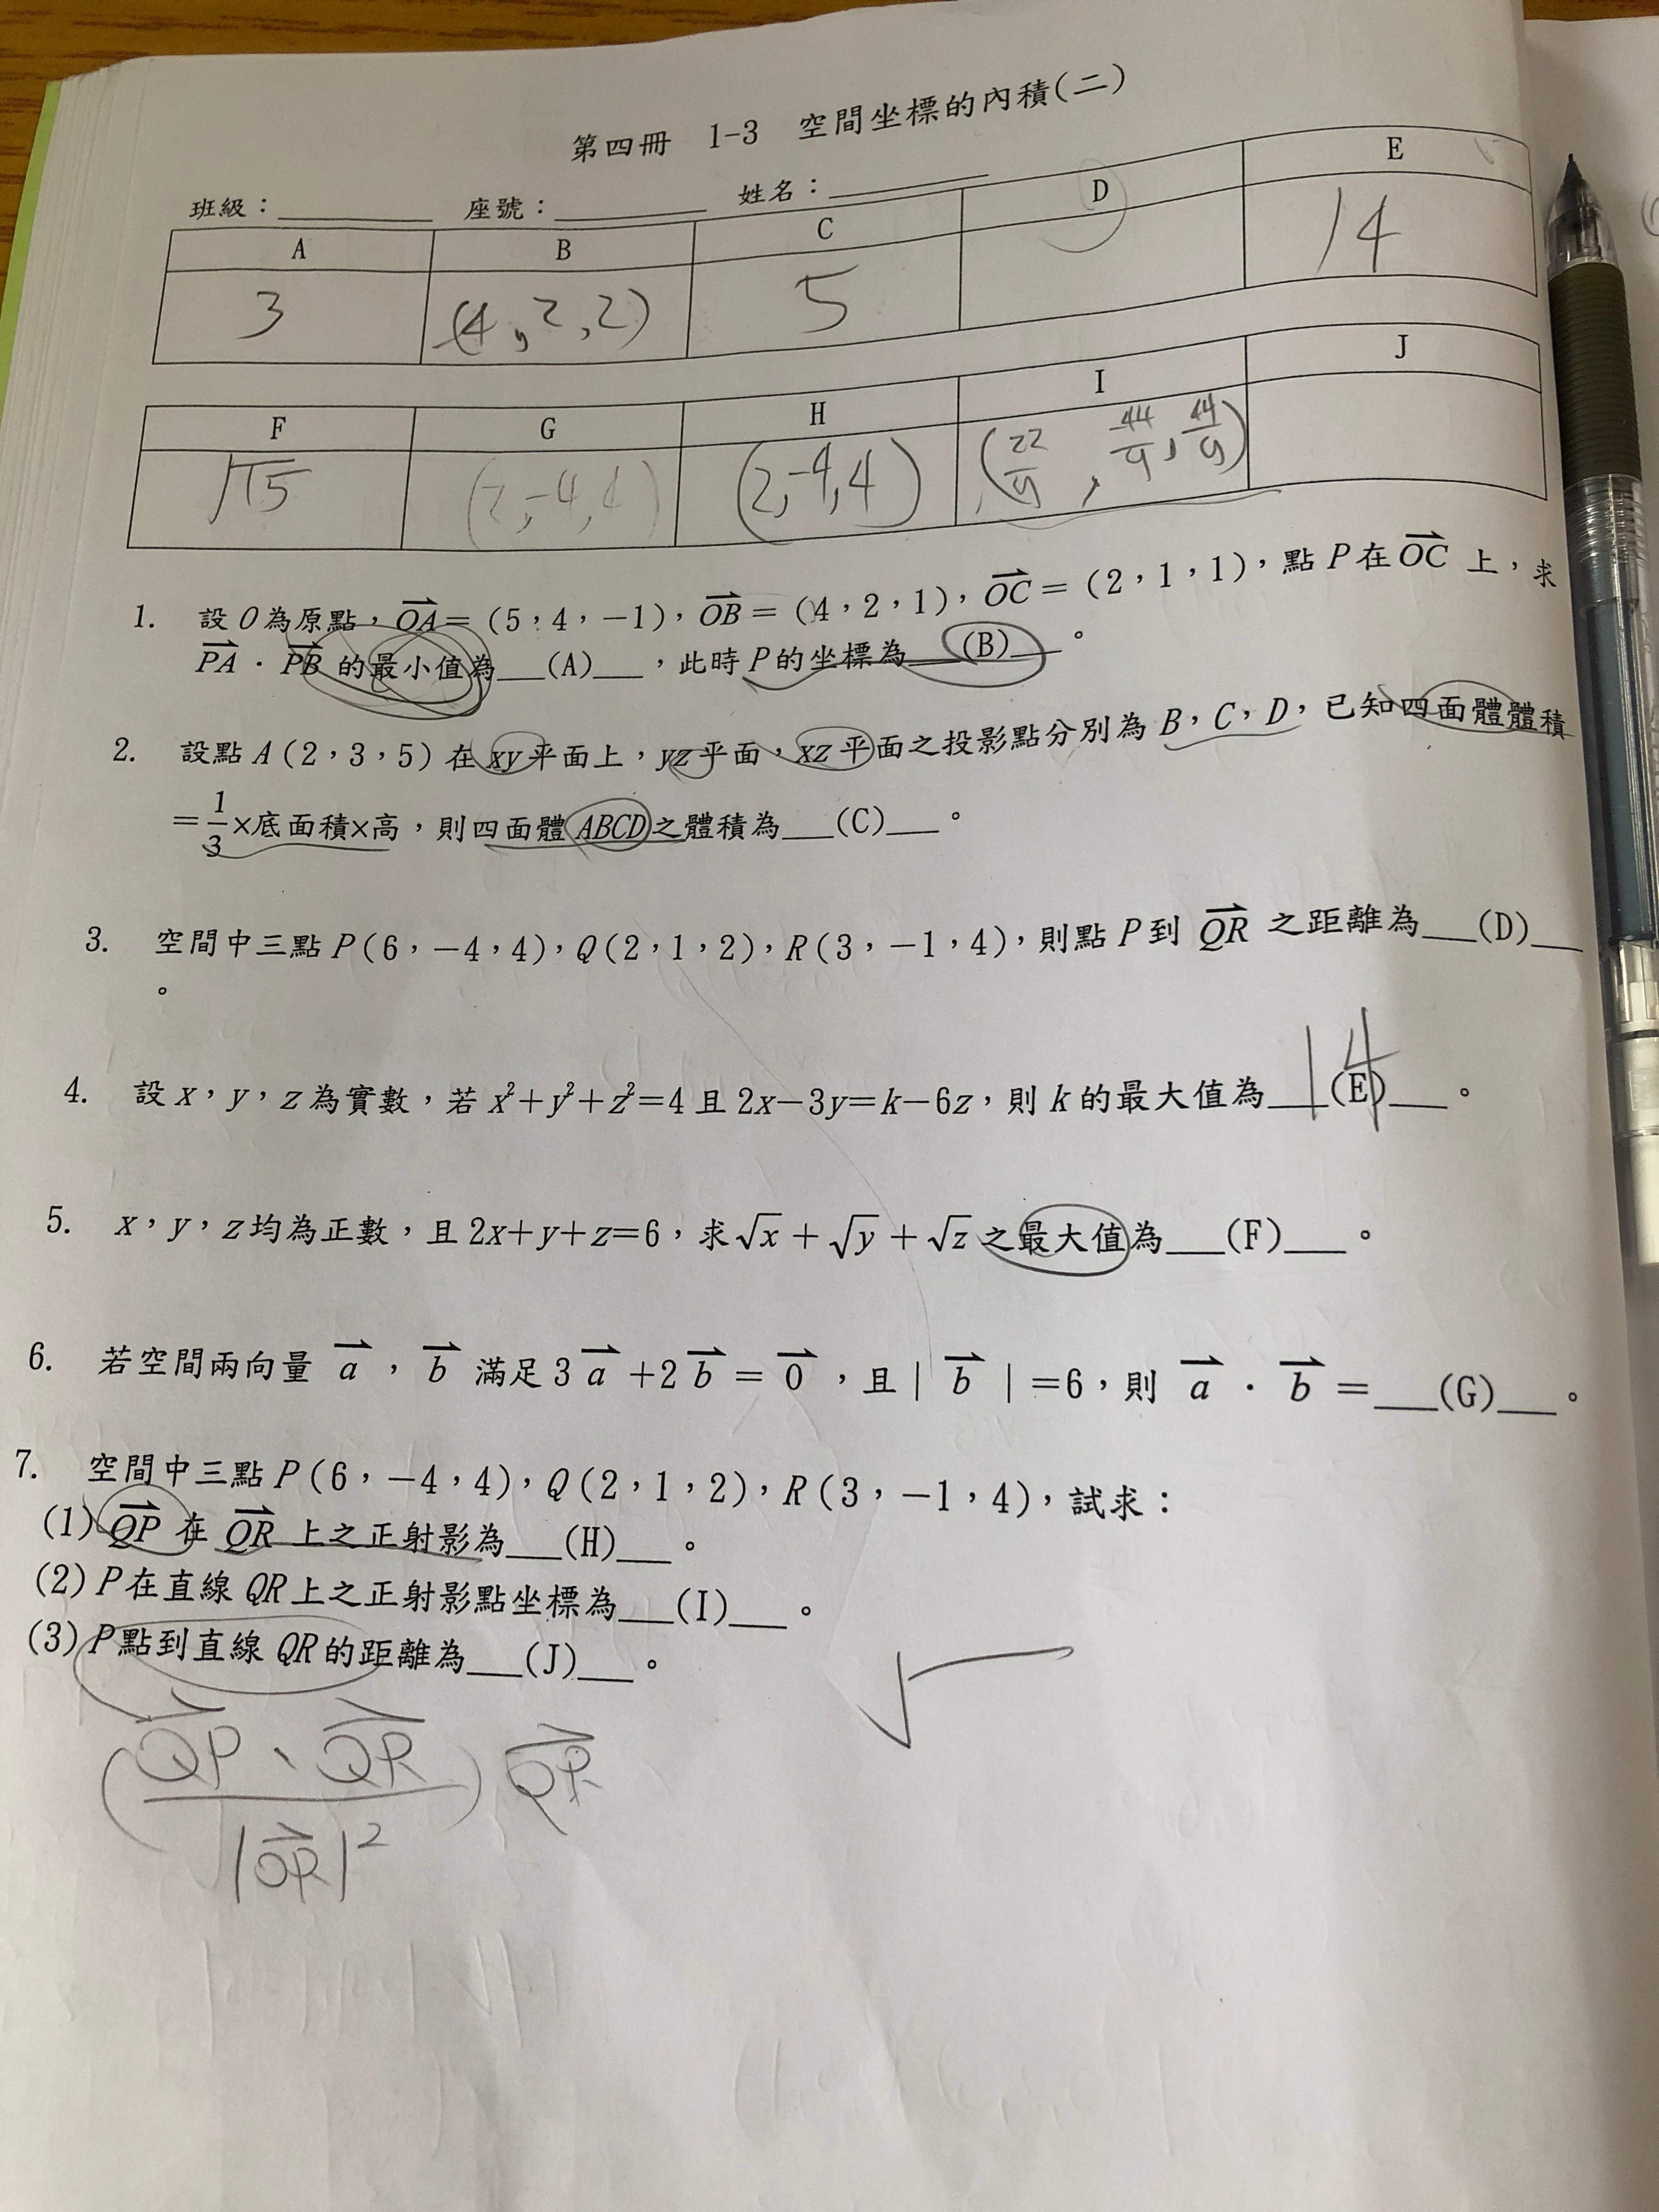 第四冊 1-3 空間坐標的內積(二)
班級：________ 座號：________ 姓名：________
A B C D E
3 (4,2,2) 5 14
F G H I J
√15 (2,-4,4) (2,-4,4) (22/9, -44/9, 44/9)
1. 設O為原點，OA=(5，4，−1)，OB=(4，2，1)，OC=(2，1，1)，點P在OC上，求
PA．PB的最小值為___(A)___，此時P的坐標為___(B)___。
2. 設點A(2，3，5)在xy平面上，yz平面，xz平面之投影點分別為B，C，D，已知四面體體積
=1/3×底面積×高，則四面體ABCD之體積為___(C)___。
3. 空間中三點P(6，−4，4)，Q(2，1，2)，R(3，−1，4)，則點P到QR之距離為___(D)___
。
4. 設x，y，z為實數，若x²+y²+z²=4且2x−3y=k−6z，則k的最大值為___(E)___。
14
5. x，y，z均為正數，且2x+y+z=6，求√x+√y+√z之最大值為___(F)___。
6. 若空間兩向量a，b滿足3a+2b=0，且|b|=6，則a．b=___(G)___。
7. 空間中三點P(6，−4，4)，Q(2，1，2)，R(3，−1，4)，試求：
(1)QP在QR上之正射影為___(H)___。
(2)P在直線QR上之正射影點坐標為___(I)___。
(3)P點到直線QR的距離為___(J)___。
√
(QP、QR/|QR|²)QR